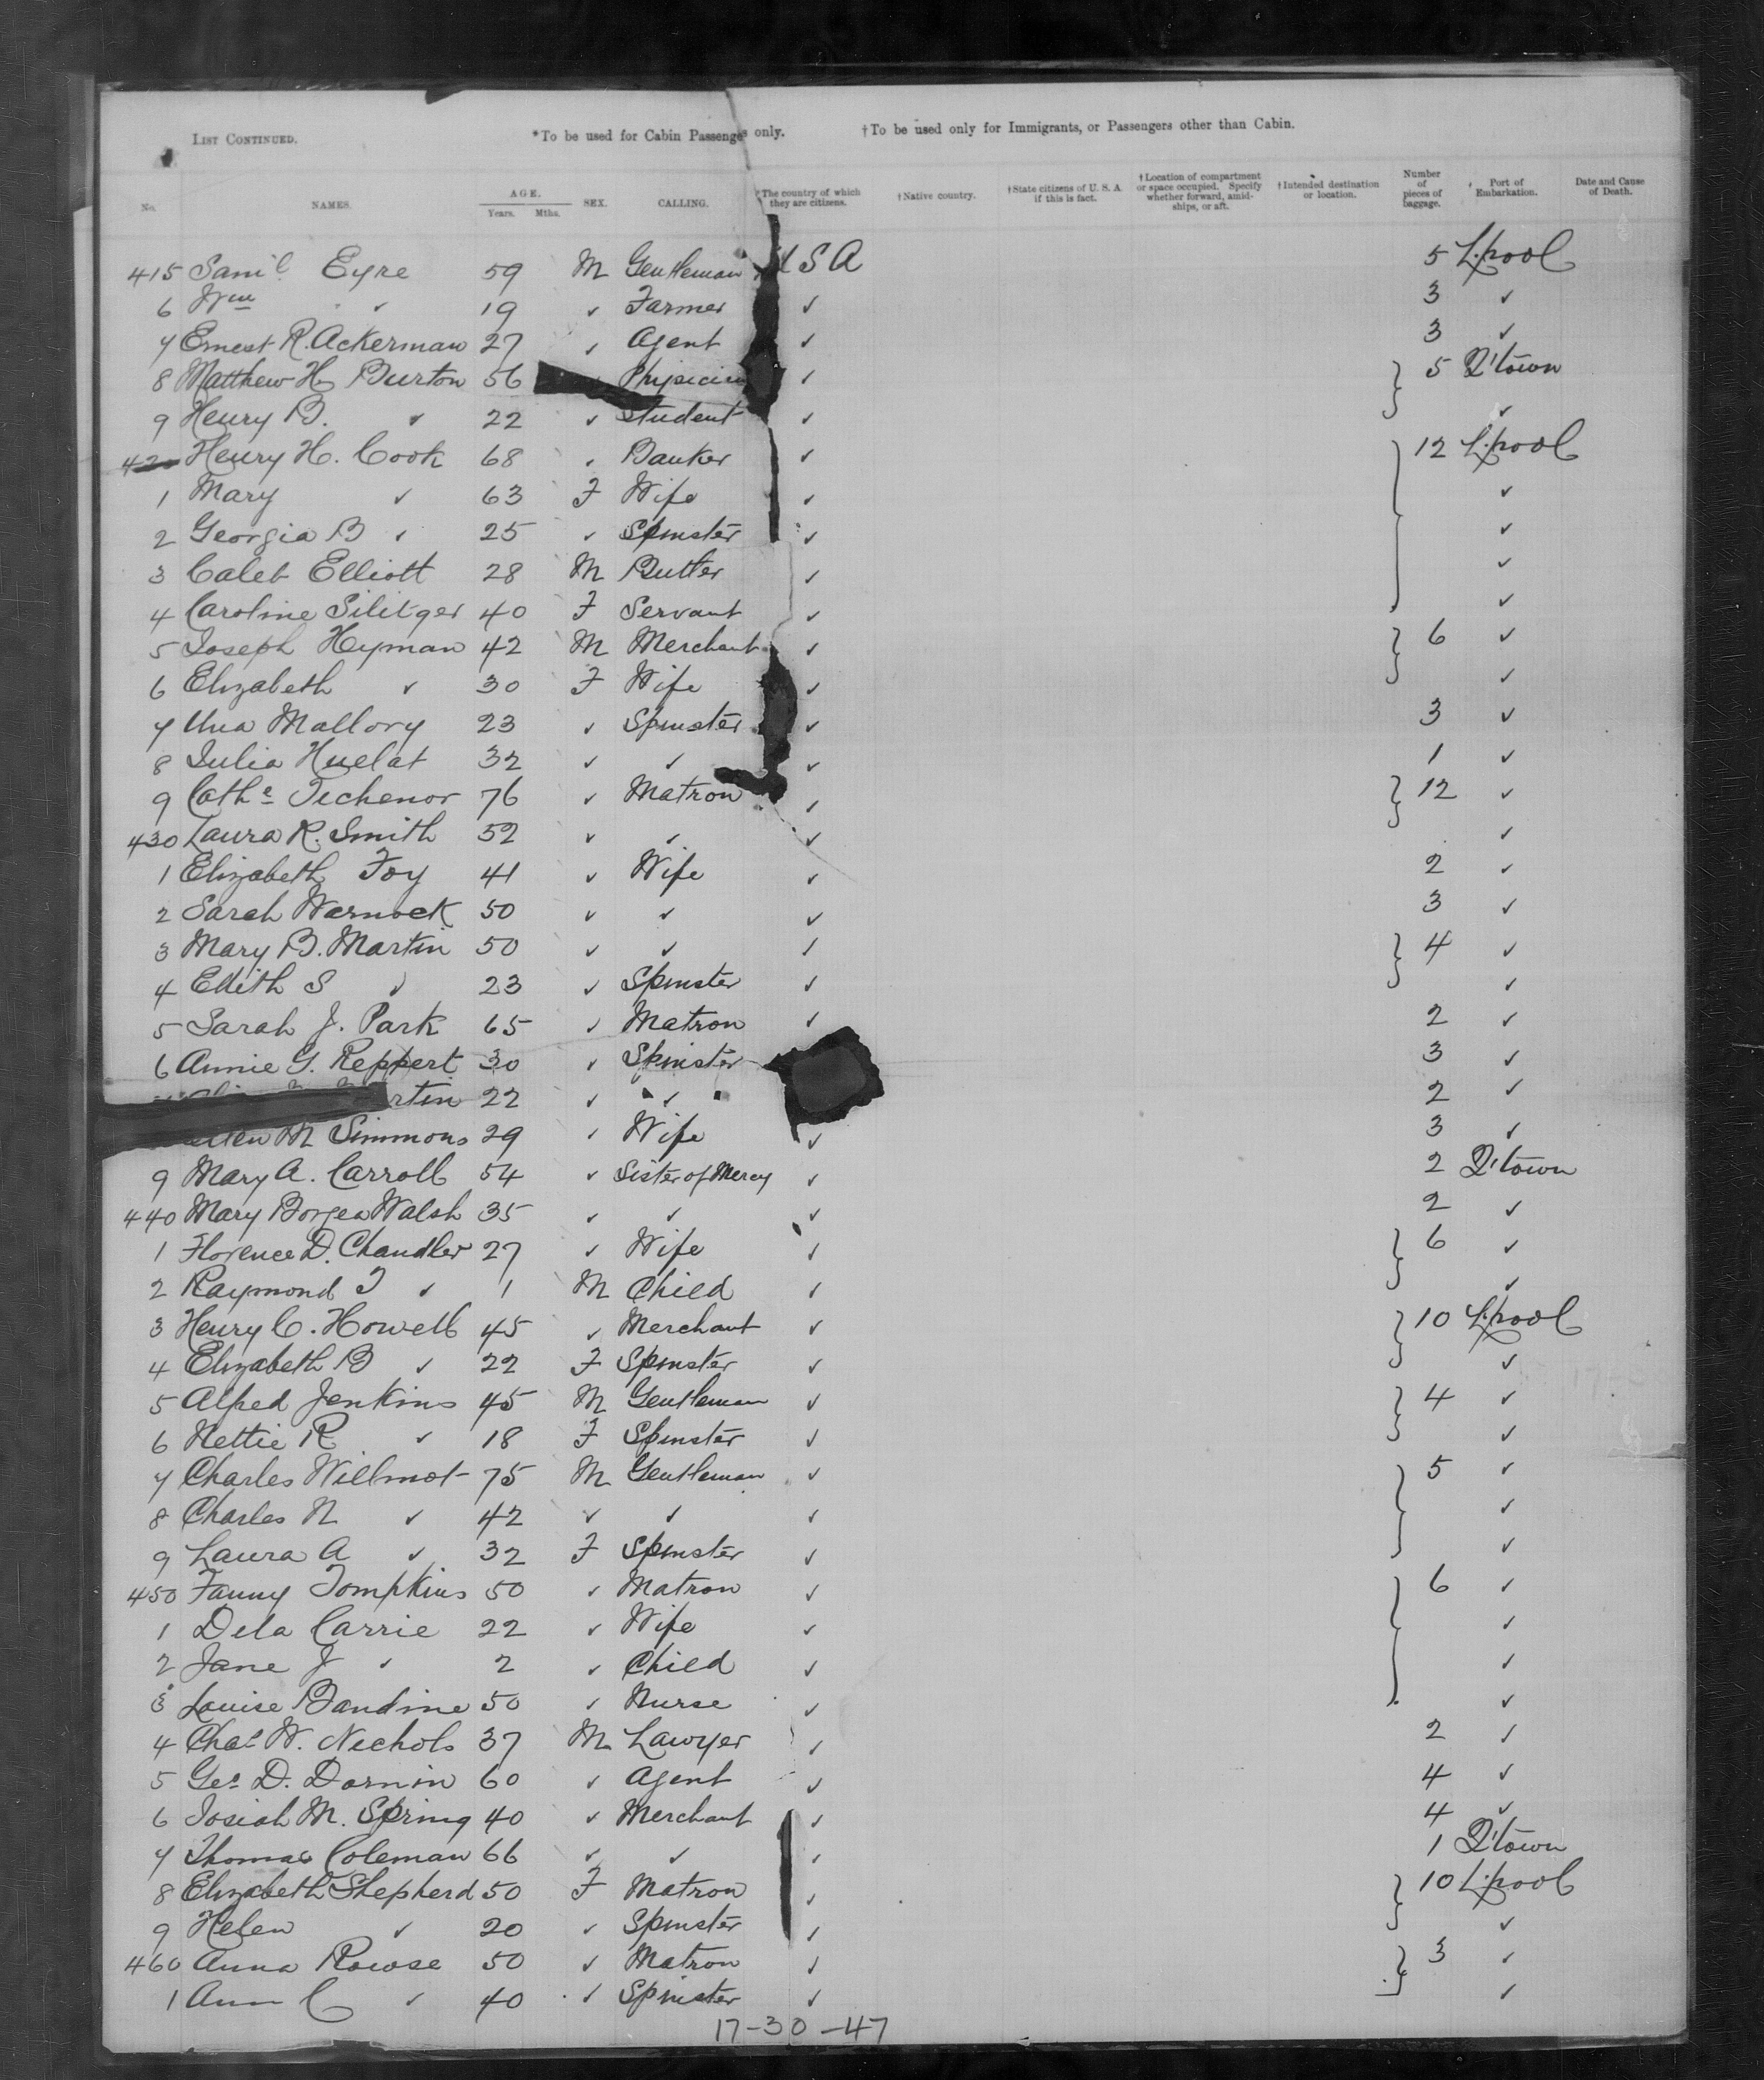 LIST CONTINUED. *To be used for Cabin Passengers only. †To be used only for Immigrants, or Passengers other than Cabin.
No. NAMES. AGE. Years. Mths. SEX. CALLING. *The country of which they are citizens. †Native country. †State citizens of U. S. A. if this is fact. †Location of compartment or space occupied. Specify whether forward, amidships, or aft. †Intended destination or location. Number of pieces of baggage. Port of Embarkation. Date and Cause of Death.
415 Saml Eyre 59 M Gentleman U S A 5 L.pool
6 Wm " 19 " Farmer " 3 "
7 Ernest R. Ackerman 27 " Agent " 3 "
8 Matthew H. Burton 56 Physician " 5 Q'town
9 Henry B. " 22 " Student " "
420 Henry H. Cook 68 " Banker " 12 L.pool
1 Mary " 63 F Wife " "
2 Georgia B " 25 " Spinster " "
3 Caleb Elliott 28 M Butler " "
4 Caroline 40 F Servant " "
5 Joseph Hyman 42 M Merchant " 6 "
6 Elizabeth " 30 F Wife " "
7 Una Mallory 23 " Spinster " 3 "
8 Julia Huelat 32 " " " 1 "
9 Cathe Tichenor 76 " Matron " 12 "
430 Laura R. Smith 52 " " " "
1 Elizabeth Foy 41 " Wife " 2 "
2 Sarah Warnock 50 " " " 3 "
3 Mary B. Martin 50 " " " 4 "
4 Edith S " 23 " Spinster " "
5 Sarah J. Park 65 " Matron " 2 "
6 Annie G. Reppert 30 " Spinster 3 "
rtin 22 " " 2 "
M Simmons 29 " Wife " 3 "
9 Mary A. Carroll 54 " Sister of Mercy " 2 Q'town
440 Mary Borgea Walsh 35 " " " 2 "
1 Florence D. Chandler 27 " Wife " 6 "
2 Raymond T " 1 M Child " "
3 Henry C. Howell 45 " Merchant " 10 L.pool
4 Elizabeth B " 22 F Spinster " "
5 Alfred Jenkins 45 M Gentleman " 4 "
6 Nettie R " 18 F Spinster " "
7 Charles Willmot 75 M Gentleman " 5 "
8 Charles N " 42 " " " "
9 Laura A " 32 F Spinster " "
450 Fanny Tompkins 50 " Matron " 6 "
1 Dela Carrie 22 " Wife " "
2 Jane J " 2 " Child " "
3 Louise Bandine 50 " Nurse " "
4 Chas W. Nichols 37 M Lawyer " 2 "
5 Geo D. Dornin 60 " Agent " 4 "
6 Josiah M. Spring 40 " Merchant " 4 "
7 Thomas Coleman 66 " " " 1 Q'town
8 Elizabeth Shepherd 50 F Matron " 10 L.pool
9 Helen " 20 " Spinster " "
460 Anna Rowse 50 " Matron " 3 "
1 Ann C " 40 " Spinster " "
17-30-47